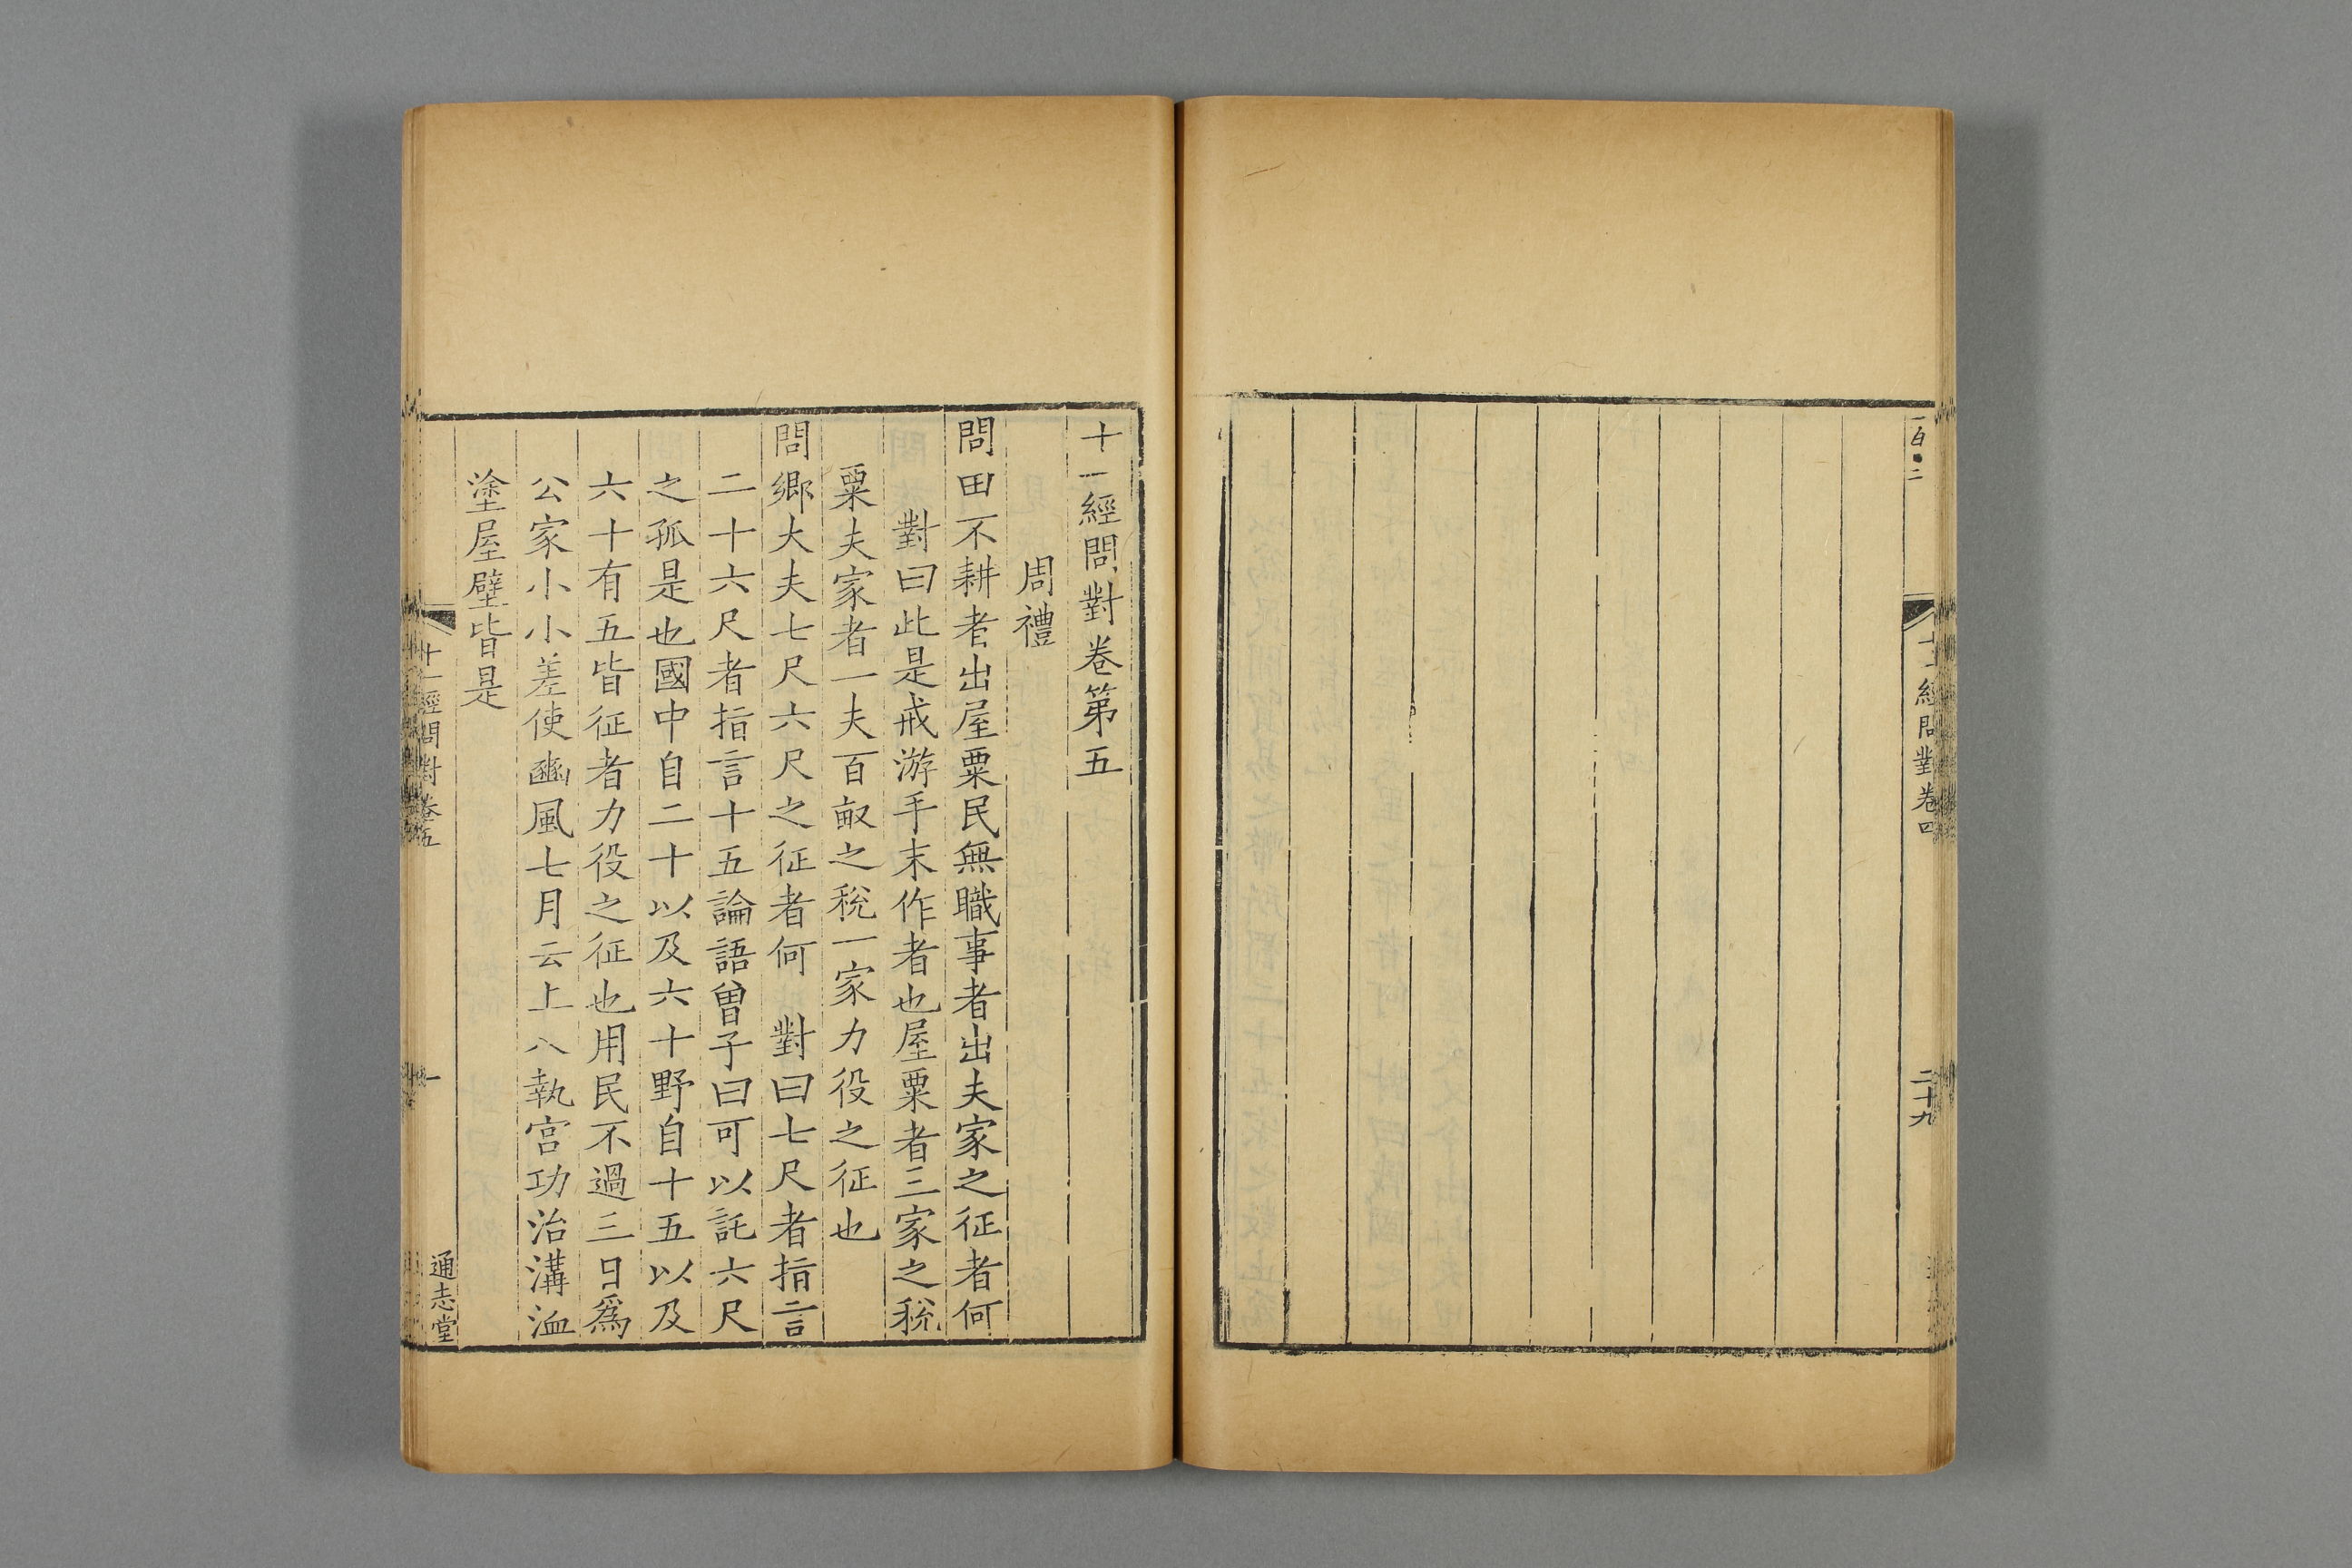 百二
十一經問對卷四
二十九
十一經問對卷第五
周禮
問田不耕者出屋粟民無職事者出夫家之征者何
對曰此是戒游手末作者也屋粟者三家之稅
粟夫家者一夫百畝之稅一家力役之征也
問鄉大夫七尺六尺之征者何 對曰七尺者指言
二十六尺者指言十五論語曾子曰可以託六尺
之孤是也國中自二十以及六十野自十五以及
六十有五皆征者力役之征也用民不過三日為
公家小小差使豳風七月云上入執宮功治溝洫
塗屋壁皆是
十一經問對卷五
一
通志堂